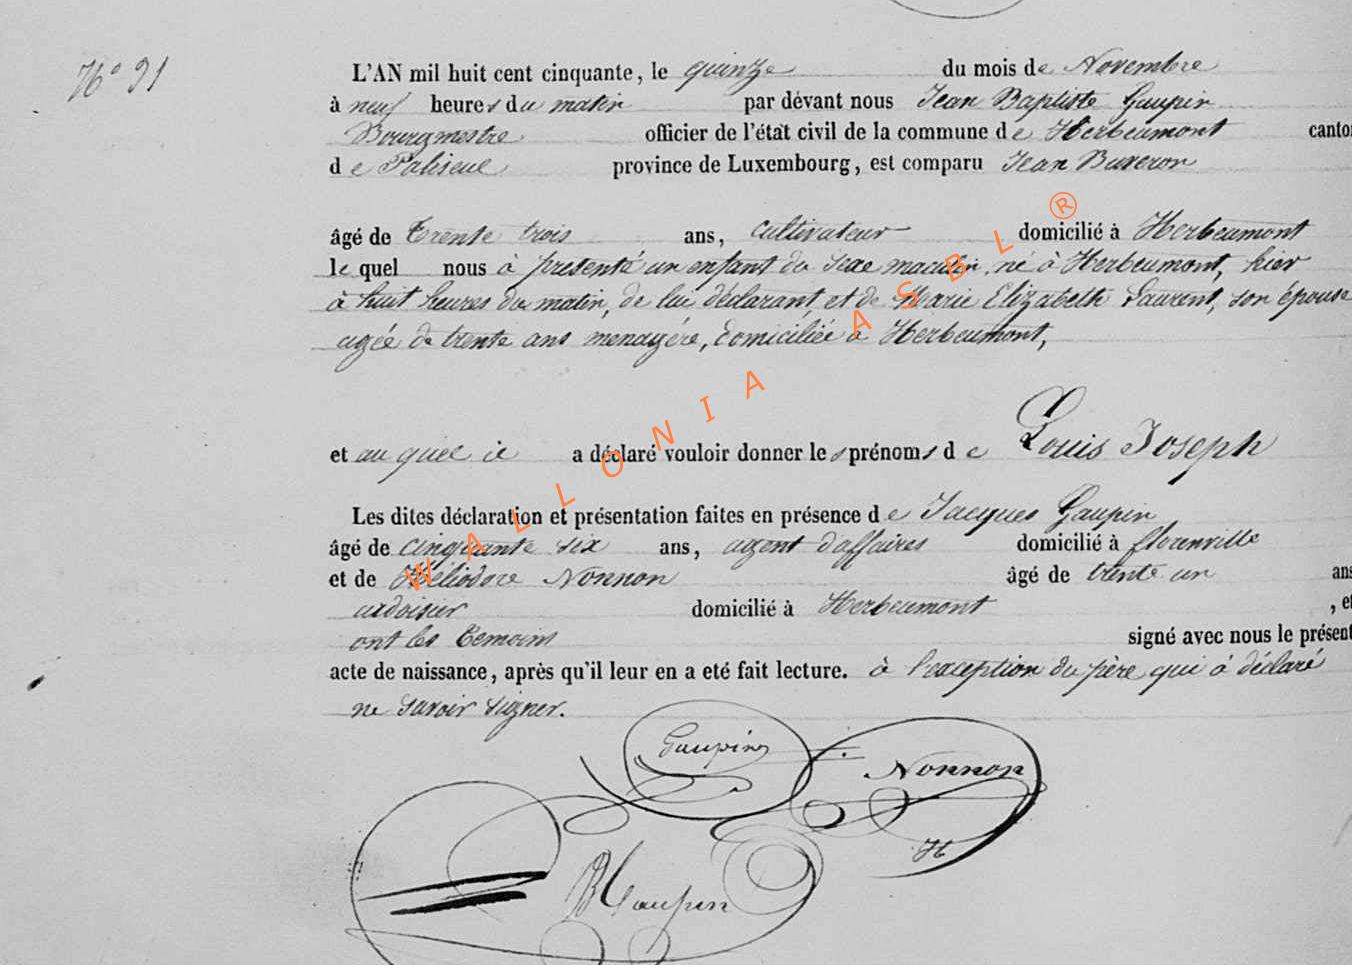 N° 91
L'AN mil huit cent cinquante, le quinze du mois de Novembre
à neuf heures du matin par dévant nous Jean Baptiste Gaupin
Bourgmestre officier de l'état civil de la commune de Herbeumont canton
de Paliseul province de Luxembourg, est comparu Jean Buseron
âgé de trente trois ans, cultivateur domicilié à Herbeumont
le quel nous à presenté un enfant du sexe maculin, né à Herbeumont, hier
à huit heures du matin, de lui déclarant, et de Marie Elizabeth Laurent, son épouse
agée de trente ans menagére, domiciliée à Herbeumont,
et au quel il a déclaré vouloir donner les prénoms de Louis Joseph
Les dites déclaration et présentation faites en présence de Jacques Gaupin
âgé de cinquante six ans, agent d'affaires domicilié à florenville
et de Héliodore Nonnon âgé de trente un ans
ardoisier domicilié à Herbeumont , et
ont les temoins signé avec nous le présent
acte de naissance, après qu'il leur en a eté fait lecture. à l'exception du père qui à déclaré
ne savoir signer.
Gaupin
Nonnon
H
Gaupin
WALLONIA ASBL®